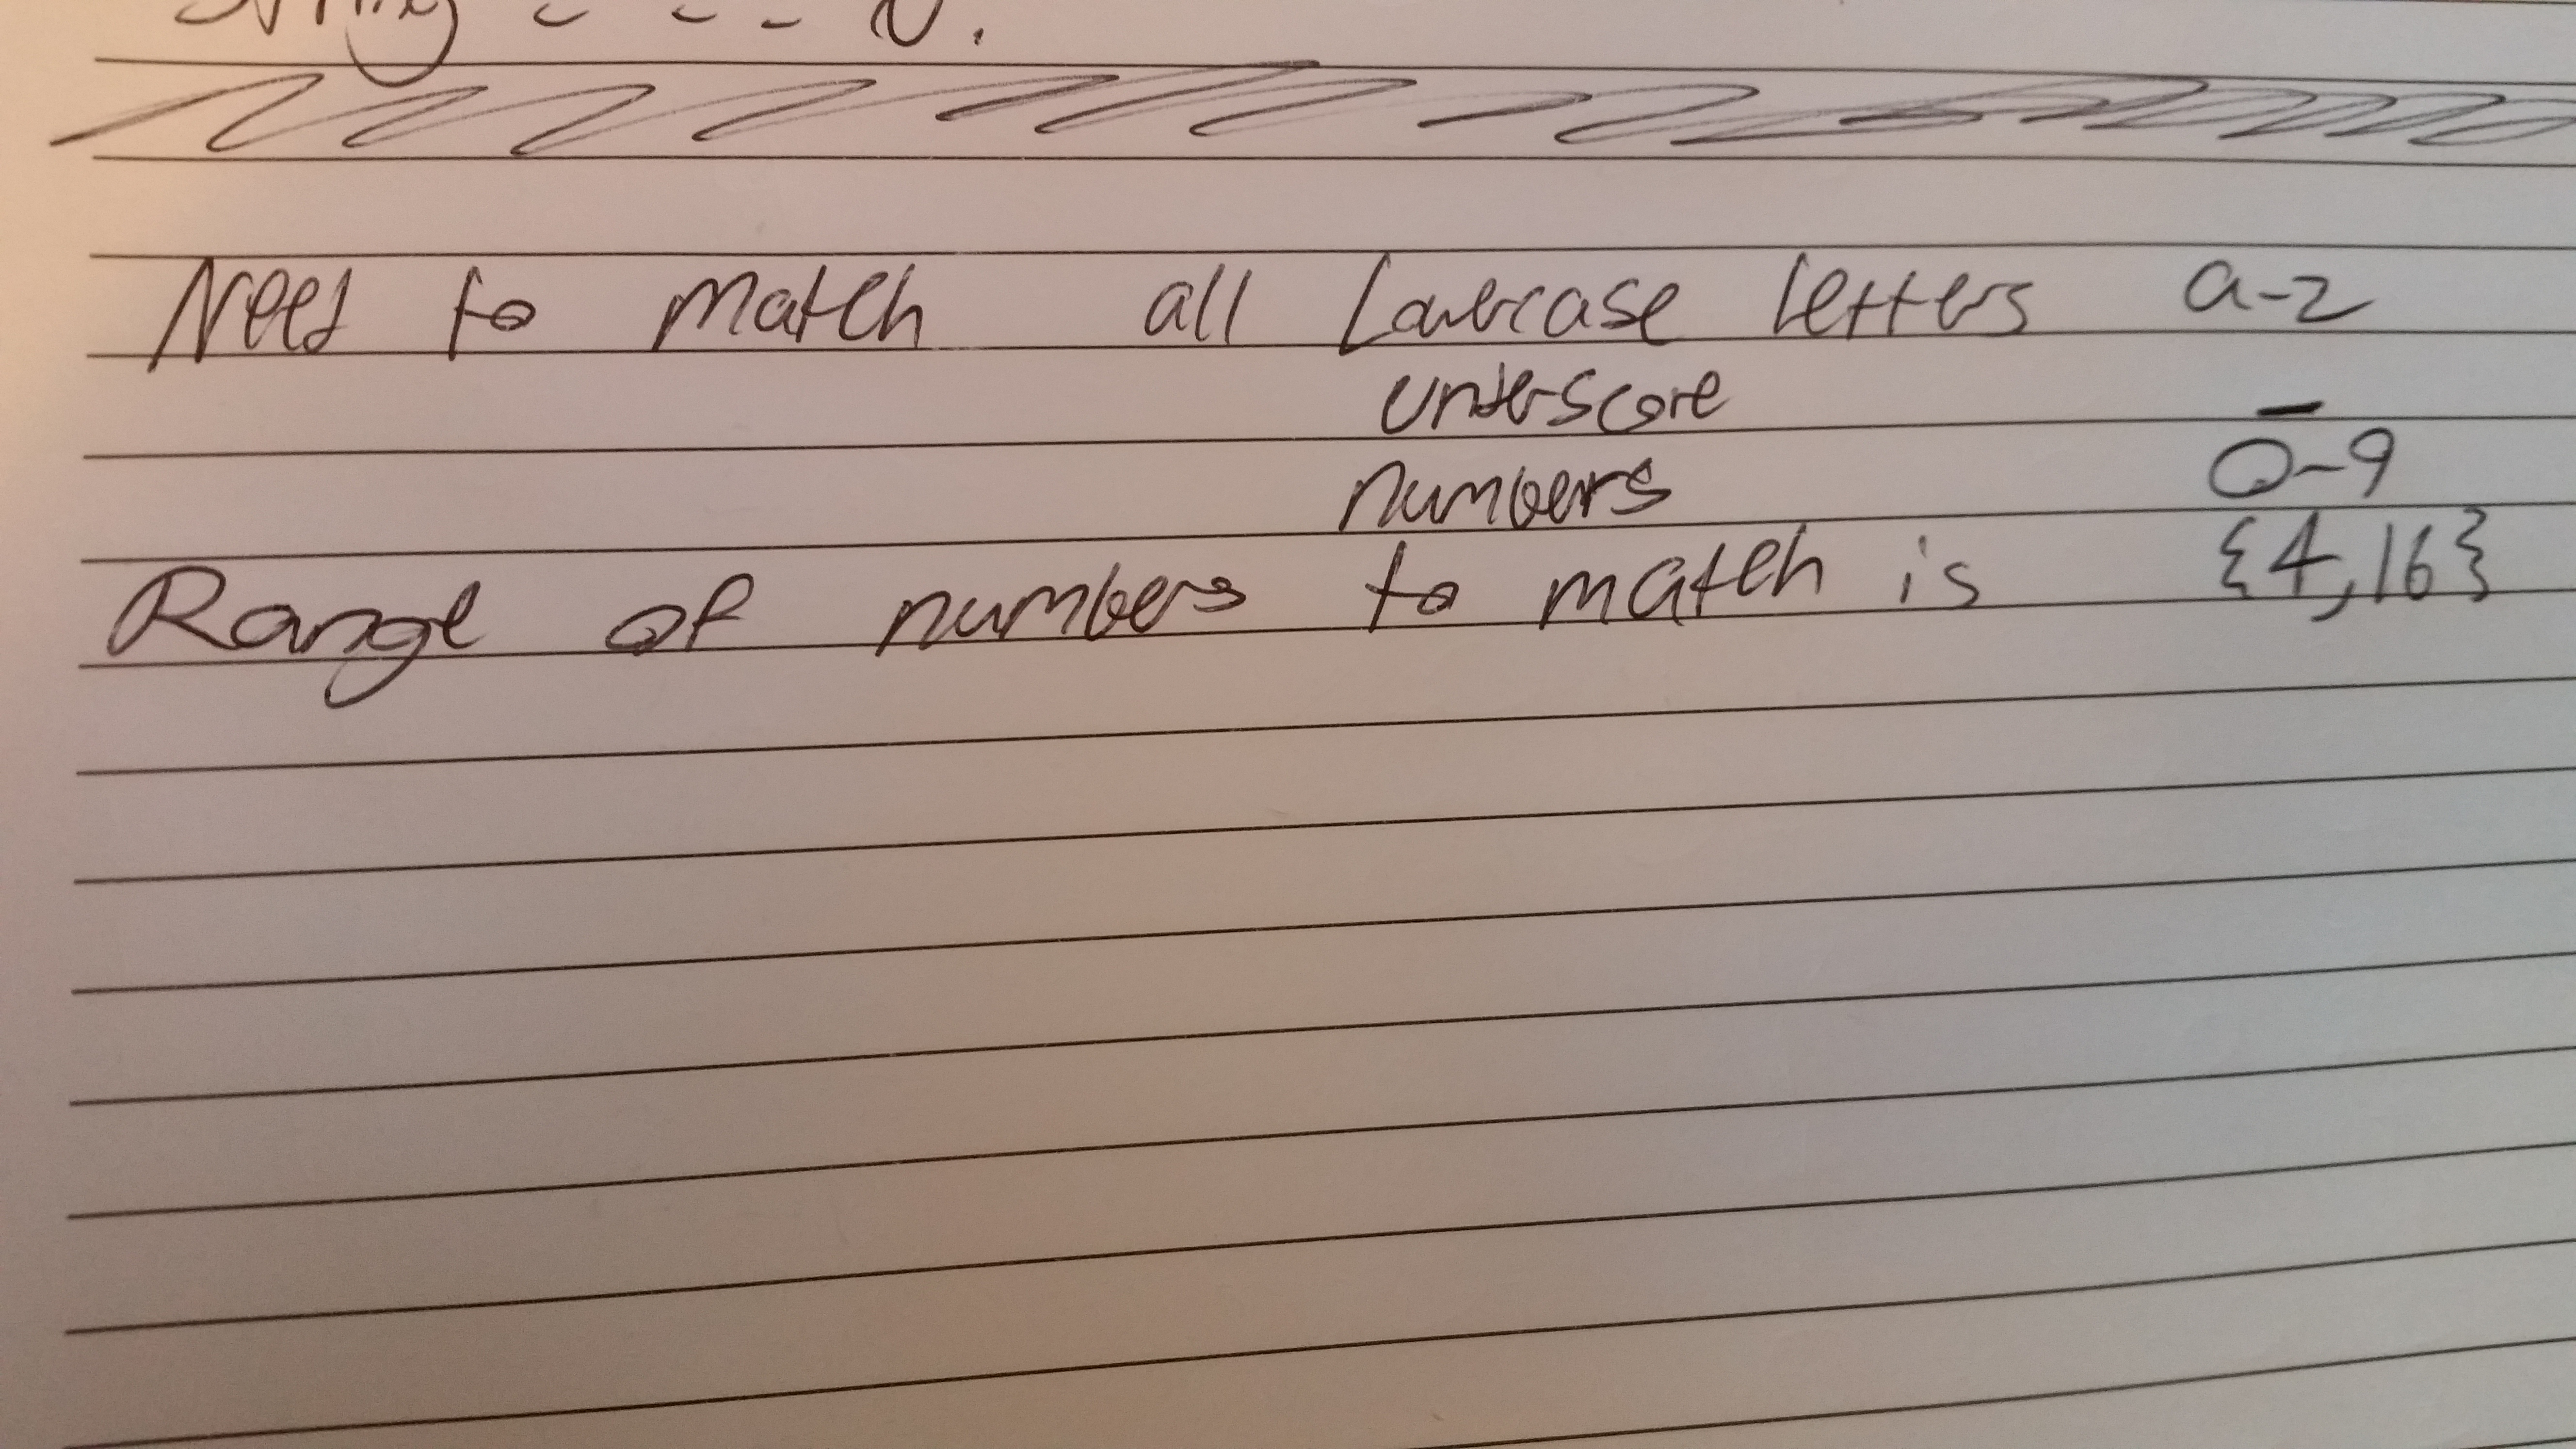 Need to match all Lowercase letters a-z
underscore _
numbers 0-9
Range of numbers to match is {4,16}